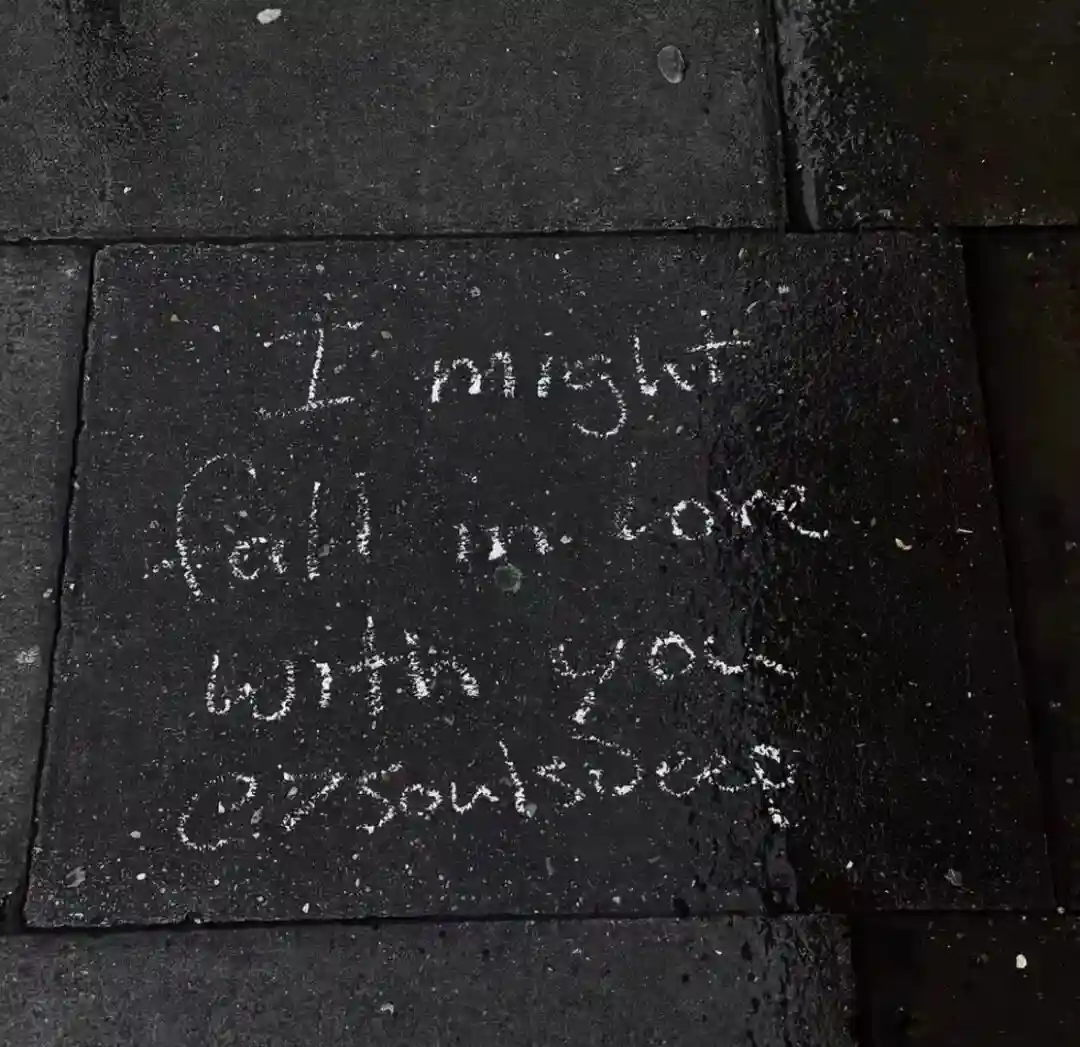 I might
fall in love
with you
@7SoulsDeep